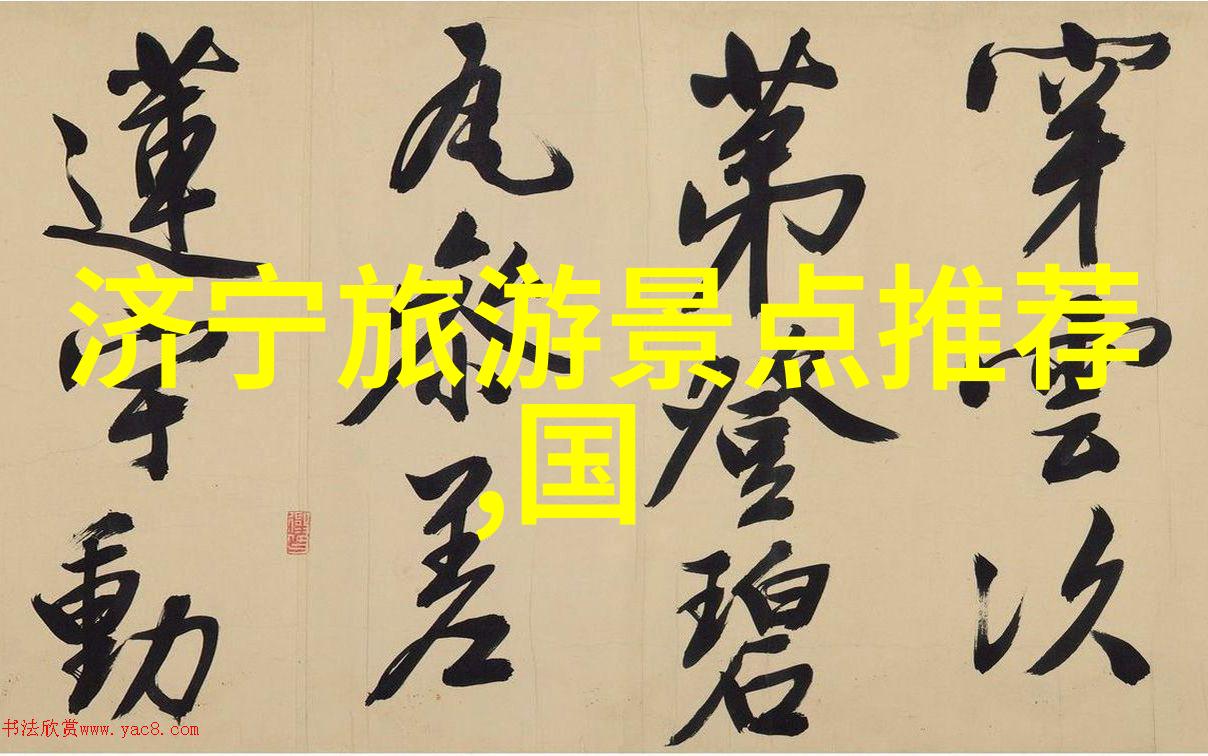 济宁旅游景点推荐
,国
穿雲次
第登碧
瓦參差
蓮宇動
书法欣赏www.yac8.com